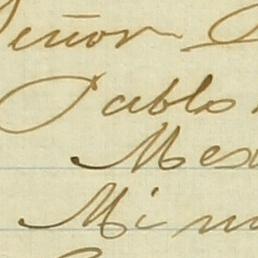 Señor
Pablo
Mex
Mi m